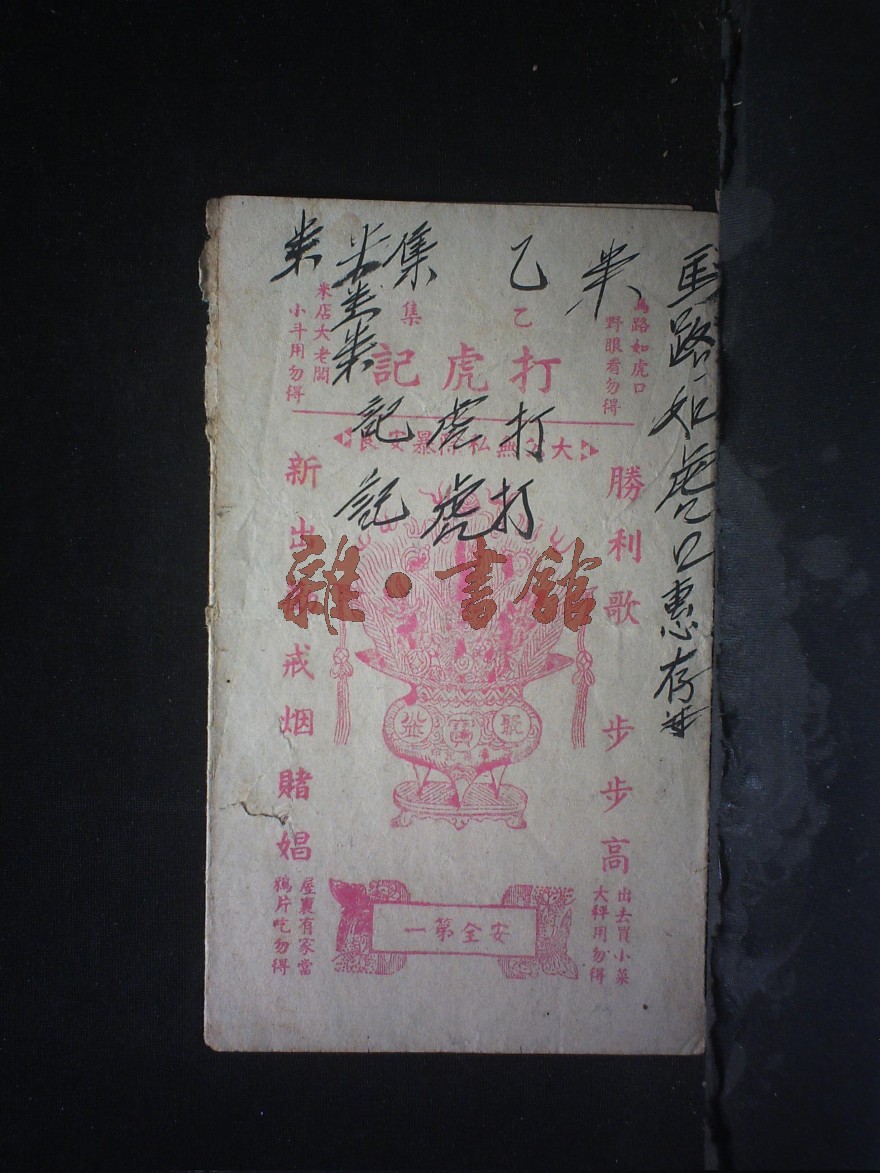 馬路如虎口惠存
米
乙集
米
米
馬路如虎口
野眼看勿得
乙集
米店大老闆
小斗用勿得
打虎記
打虎記
打虎記
大公無私除暴安良
勝利歌 步步高
新出品戒烟賭娼
雜·書館
聚寶盆
出去買小菜
大秤用勿得
安全第一
屋裏有家當
鴉片吃勿得